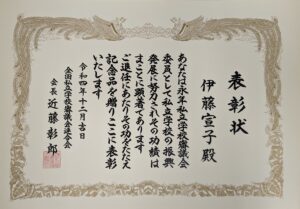 表彰状
伊藤宣子殿
あなたは永年私立学校審議会
委員として私立学校の振興
発展に努力されその功績は
まことに顕著であります
ご退任にあたりその功をたたえ
記念品を贈りここに表彰
いたします
令和四年十二月吉日
全国私立学校審議会連合会
会長 近藤彰郎